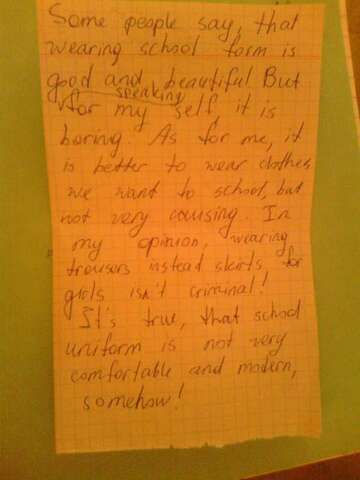 Some people say, that
wearing school form is
good and beautiful. But
speaking
for my self, it is
boring. As for me, it
is better to wear clothes
we want to school, but
not very causing. In
my opinion, wearing
trousers instead skirts for
girls isn't criminal!
It's true, that school
uniform is not very
comfortable and modern,
somehow!